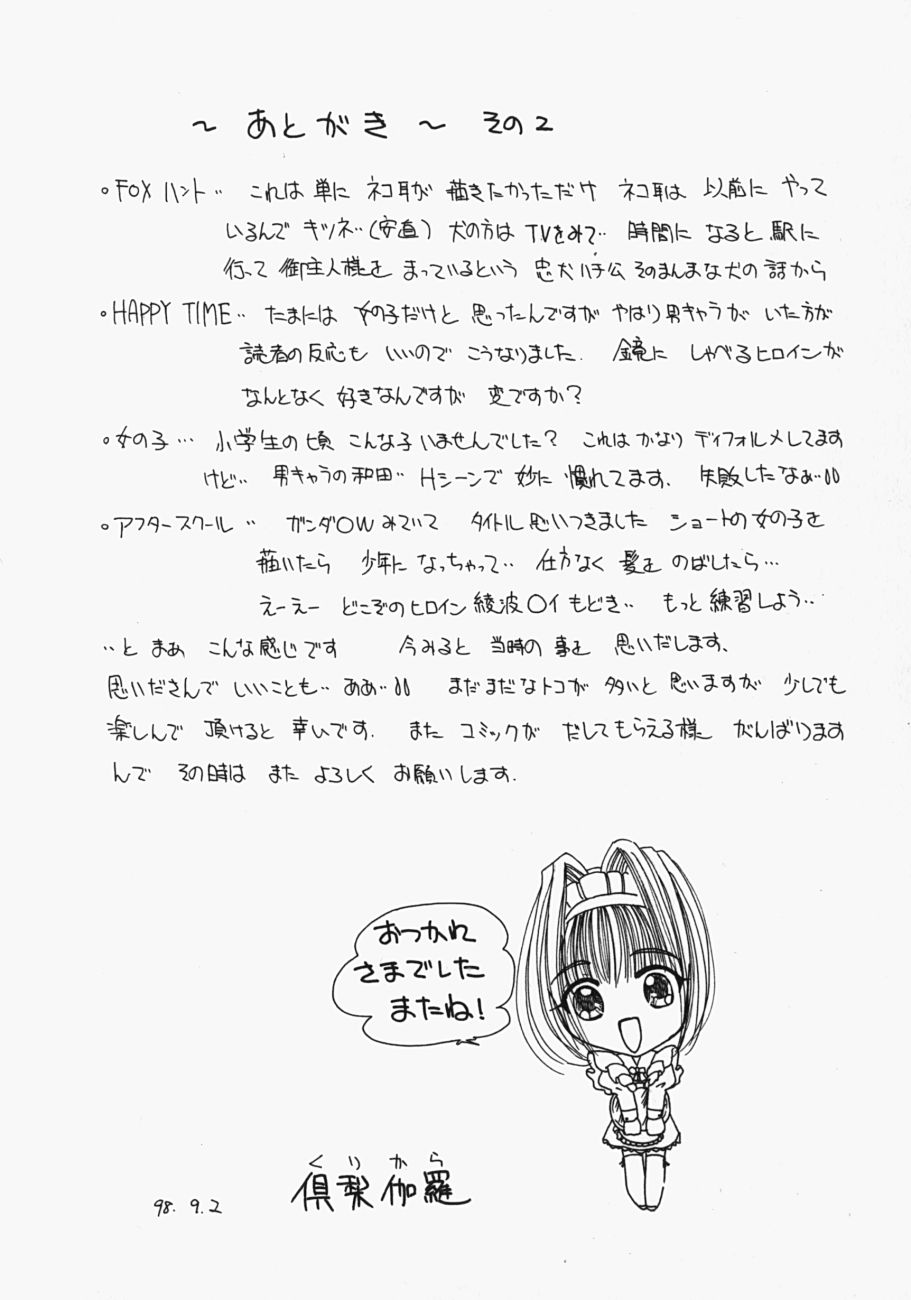 ～ あとがき ～ その2
。FOX ハント‥ これは単に ネコ耳が 描きたかっただけ ネコ耳は 以前に やって
いるんで キツネ‥(安直) 犬の方は TVをみて‥ 時間に なると 駅に
行って 御主人様を まっているという 忠犬ハチ公 そのまんまな犬の話から
。HAPPY TIME‥ たまには 女の子だけと 思ったんですが やはり男キャラが いた方が
読者の反応も いいので こうなりました. 鏡に しゃべるヒロインが
なんとなく 好きなんですが 変ですか?
。女の子… 小学生の頃 こんな子いませんでした? これは かなり ディフォルメしてます
けど‥ 男キャラの和田‥ Hシーンで 妙に 慣れてます、 失敗したなぁ‥
。アフタースクール ‥ ガンダ〇Wみていて タイトル思いつきました ショートの女の子を
描いたら 少年に なっちゃって‥ 仕方なく 髪を のばしたら…
えーえー どこぞのヒロイン綾波〇イもどき‥ もっと練習しよう‥
‥と まぁ こんな感じです 今みると 当時の 事を 思いだします、
思いださんで いいことも‥ あぁ‥ まだまだなトコが 多いと 思いますが 少しでも
楽しんで 頂けると 幸いです. また コミックが だしてもらえる様 がんばります
んで その時は また よろしく お願いします.
おつかれ
さまでした
またね!
くりから
倶梨伽羅
98. 9. 2